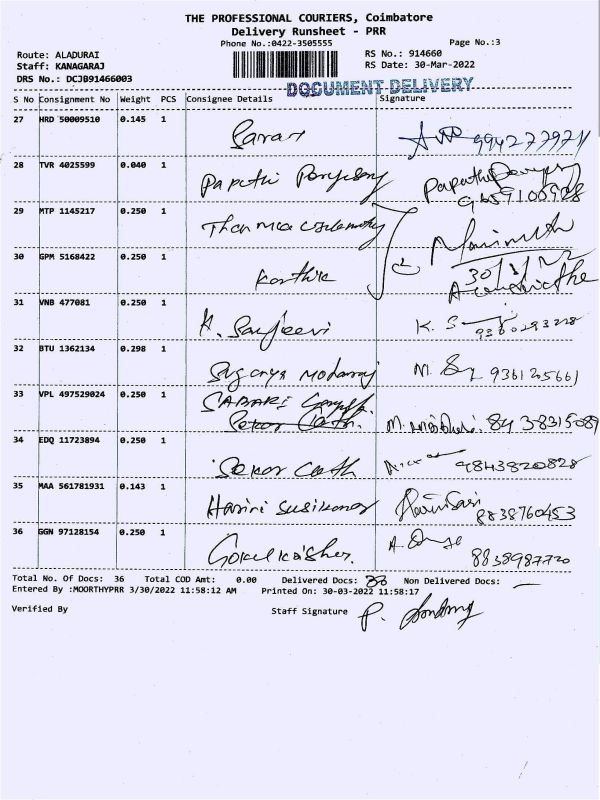 THE PROFESSIONAL COURIERS, Coimbatore
Delivery Runsheet - PRR
Phone No.:0422-3505555 Page No.:3
Route: ALADURAI RS No.: 914660
Staff: KANAGARAJ RS Date: 30-Mar-2022
DRS No.: DCJB91466003
DOCUMENT DELIVERY
S No Consignment No Weight PCS Consignee Details Signature
27 HRD 50009510 0.145 1
Saran 9942779771
28 TVR 4025599 0.040 1
Papathi
29 MTP 1145217 0.250 1
30 GPM 5168422 0.250 1
Karthik
31 VNB 477081 0.250 1
K. Sanjeevi K. S
32 BTU 1362134 0.298 1
Suganya M. 9361205661
33 VPL 497529024 0.250 1
SABARI
M. 84 38315089
34 EDQ 11723894 0.250 1
Sekar 9843820828
35 MAA 561781931 0.143 1
Harini 8838760453
36 GGN 97128154 0.250 1
A. 8838987720
Total No. Of Docs: 36 Total COD Amt: 0.00 Delivered Docs: Non Delivered Docs: —
Entered By :MOORTHYPRR 3/30/2022 11:58:12 AM Printed On: 30-03-2022 11:58:17
Verified By Staff Signature P.